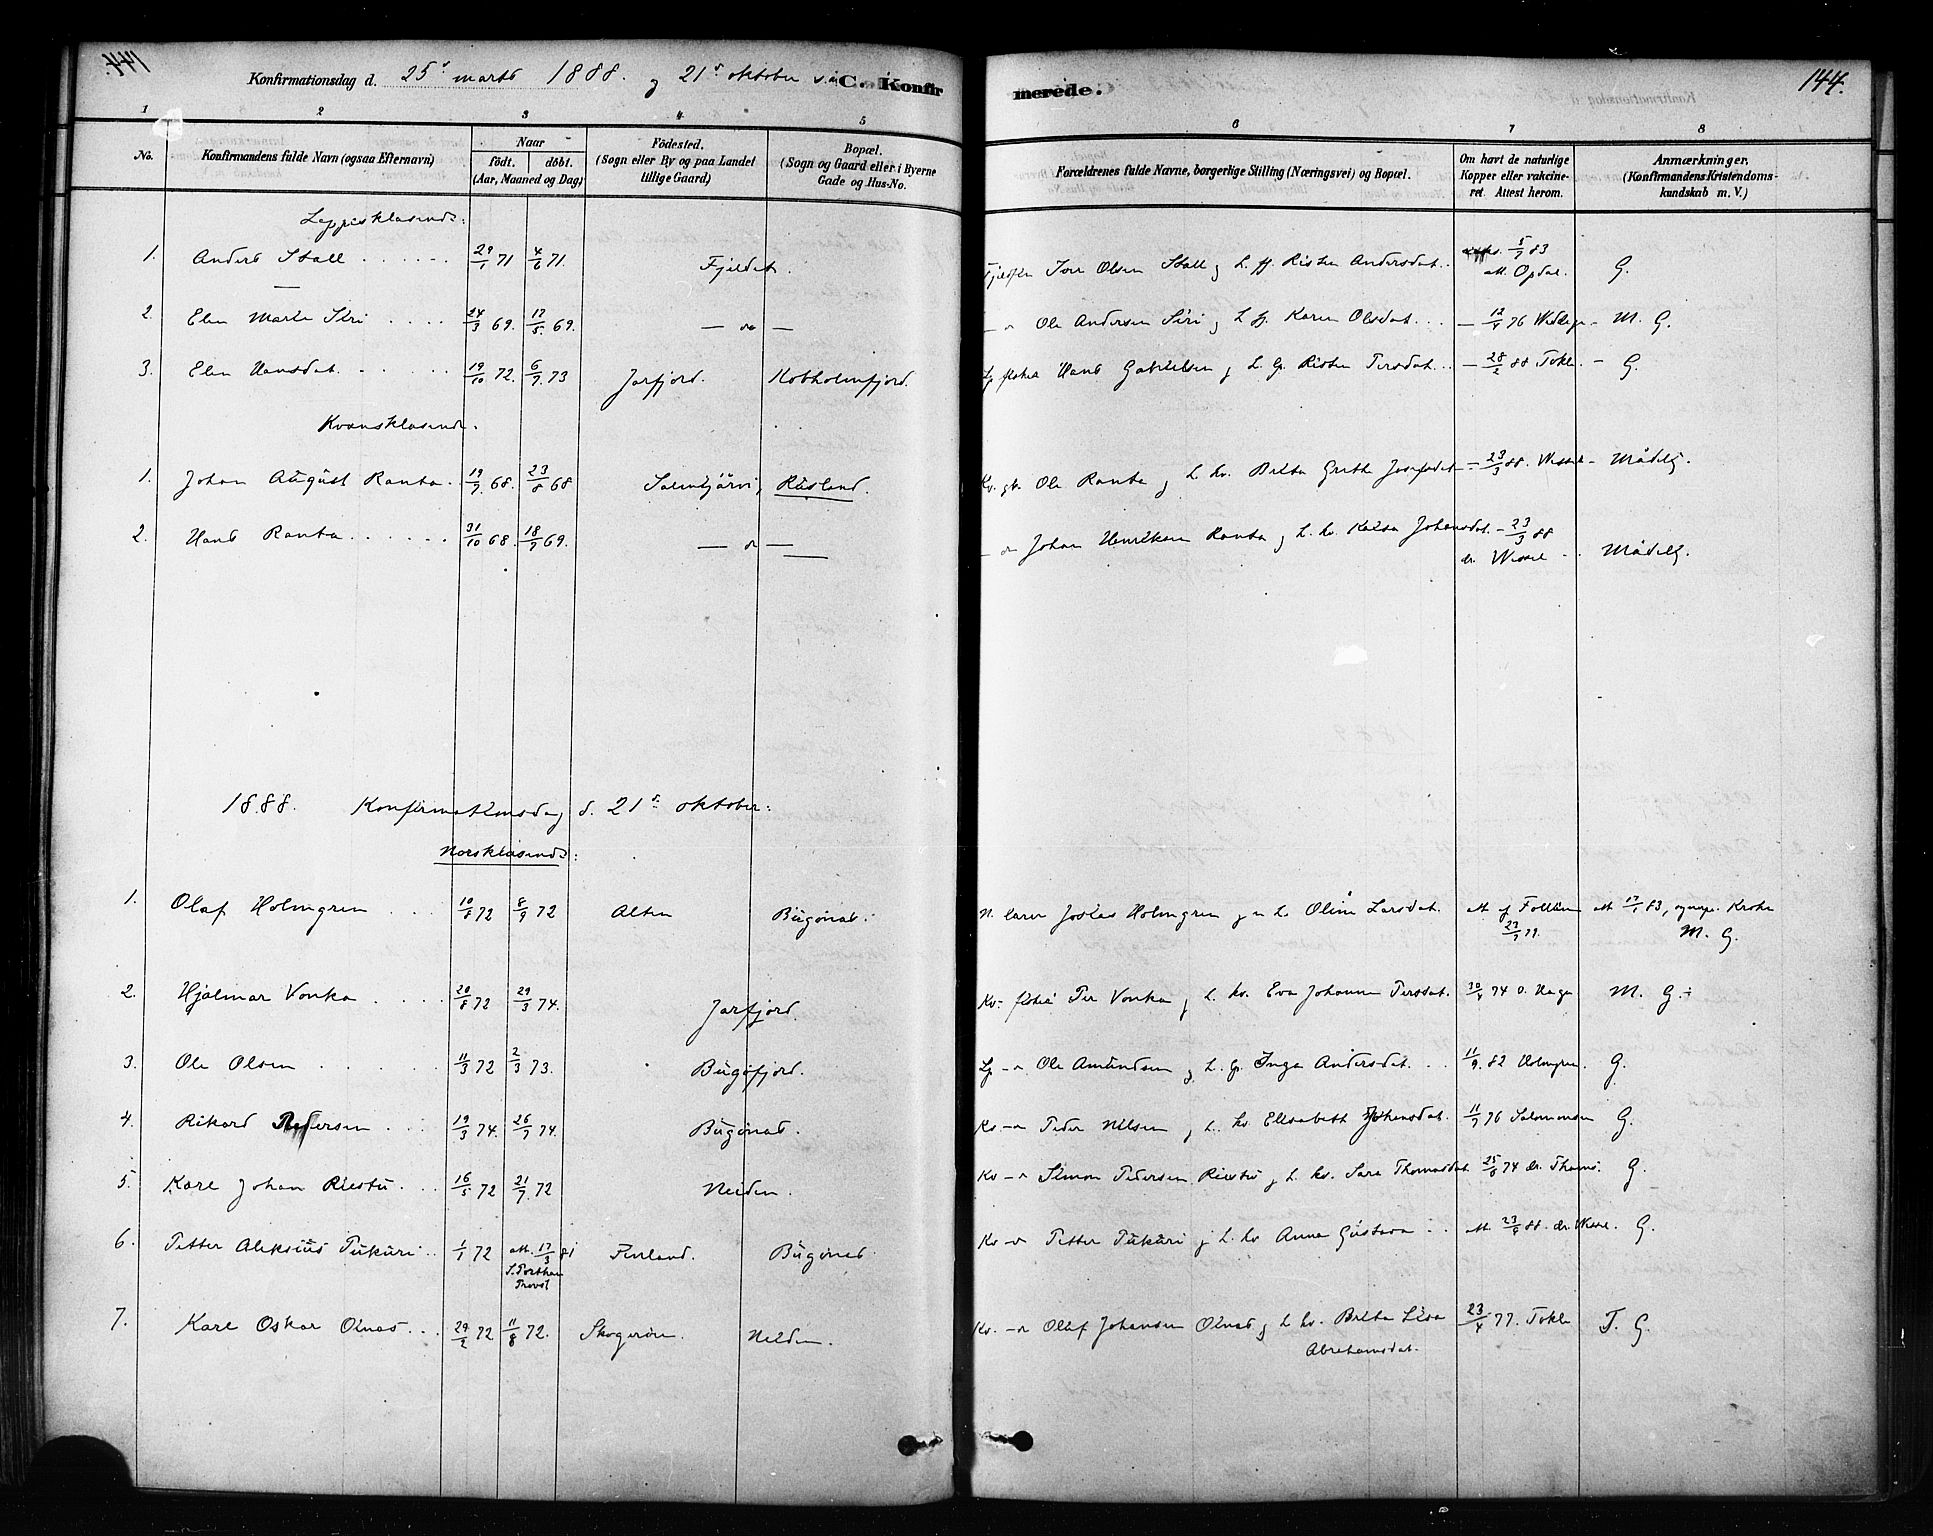 Konfirmationsdag d. 25d marts 1888. og 21d oktober s.a. C. Konfirmerede. 144.
1 2 3 4 5 6 7 8
No. Konfirmandens fulde Navn (ogsaa Efternavn) Naar født. døbt. (Aar, Maaned og Dag) Födested. (Sogn eller By og paa Landet tillige Gaard) Bopæl. (Sogn og Gaard eller i Byerne Gade og Hus-No. Forældrenes fulde Navne, borgerlige Stilling (Næringsvei) og Bopæl. Om havt de naturlige Kopper eller vakcineret. Attest herom. Anmærkninger. (Konfirmandens Kristendomskundskab m. V.)
Lappisklæsende:
1. Anders Stall 29/1 71 4/6 71. Fjeldet. Fjeldfin Iver Olsen Stall og h. ff. Risten Andersdat. 5/7 83 att. Opdal. G.
2. Elen Marie Siri 24/3 69. 17/5 69. — " — — " Ole Andersen Siri og h. ff. Karen Olsdat. — 12/9 76 M. G.
3. Elen Hansdat. 19/10 72. 6/7 73 Jarfjord. Kobholmfjord. Lp. fisker Hans Gabrielsen og h. Lp. Risten Persdat. — 28/2 88 Tokle — G.
Kvænsklæsende.
1. Johan August Ranta. 19/7 68. 23/8 68 Salmijärvi, Rusland. Kv. gb. Ole Ranta og h. kv. Brita Greth Josefsdat — 23/3 88. Wessel — Mådelig.
2. Hans Ranta 31/10 68. 18/7 69. — " — — " Johan Henriksen Ranta og h. kv. Kaisa Johansdat. — 23/3 88 dr. Wessel — Mådelig.
1888. Konfirmationsdag d. 21d oktober:
Norsklæsende:
1. Olaf Holmgren 10/8 72 8/9 72 Alten Bugønæs. N. lærer Jostas Holmgren og n. h. Oline Larsdat. att. af Follum 27/7 79. att. 17/1 83, Kroken M. G.
2. Hjalmar Vonka 20/8 72 29/3 74. Jarfjord. Kv. fisker Per Vonka og h. kv. Eva Johanne Persdat. 30/4 74 O. Haga M. G. +
3. Ole Olsen 11/3 72 2/3 73. Bugøfjord. Lp — " Ole Amundsen og h. Lp. Inga Andersdat. 11/9. 82 Holmgren. G.
4. Rikard Pedersen 19/3 74. 26/7 74. Bugønæs. Kv — " Peder Nilsen og h. kv. Elisabeth Johansdat. 11/7 76 Salomonsen G.
5. Karl Johan Riestu 16/5 72 21/7 72 Neiden. Kv — " Simon Pedersen Riestu og h. kv. Sara Thomasdat. 25/8 74 dr. Thams. G.
6. Petter Aleksius Pukuri 1/1 72 att. 17/3 81 S. Porthan Provst Finland. Bugønæs Kv — " Petter Pukuri og h. kv Anna Gustava att. 23/9 88. dr. Wessel. G.
7. Karl Oskar Oinas 29/2 72 11/8 72. Skogerøen. Neiden. Kv. — " Ollef Johansen Oinas og h. kv. Brita Lisa Abrahamsdat. 23/4 77. Tokle T. G.